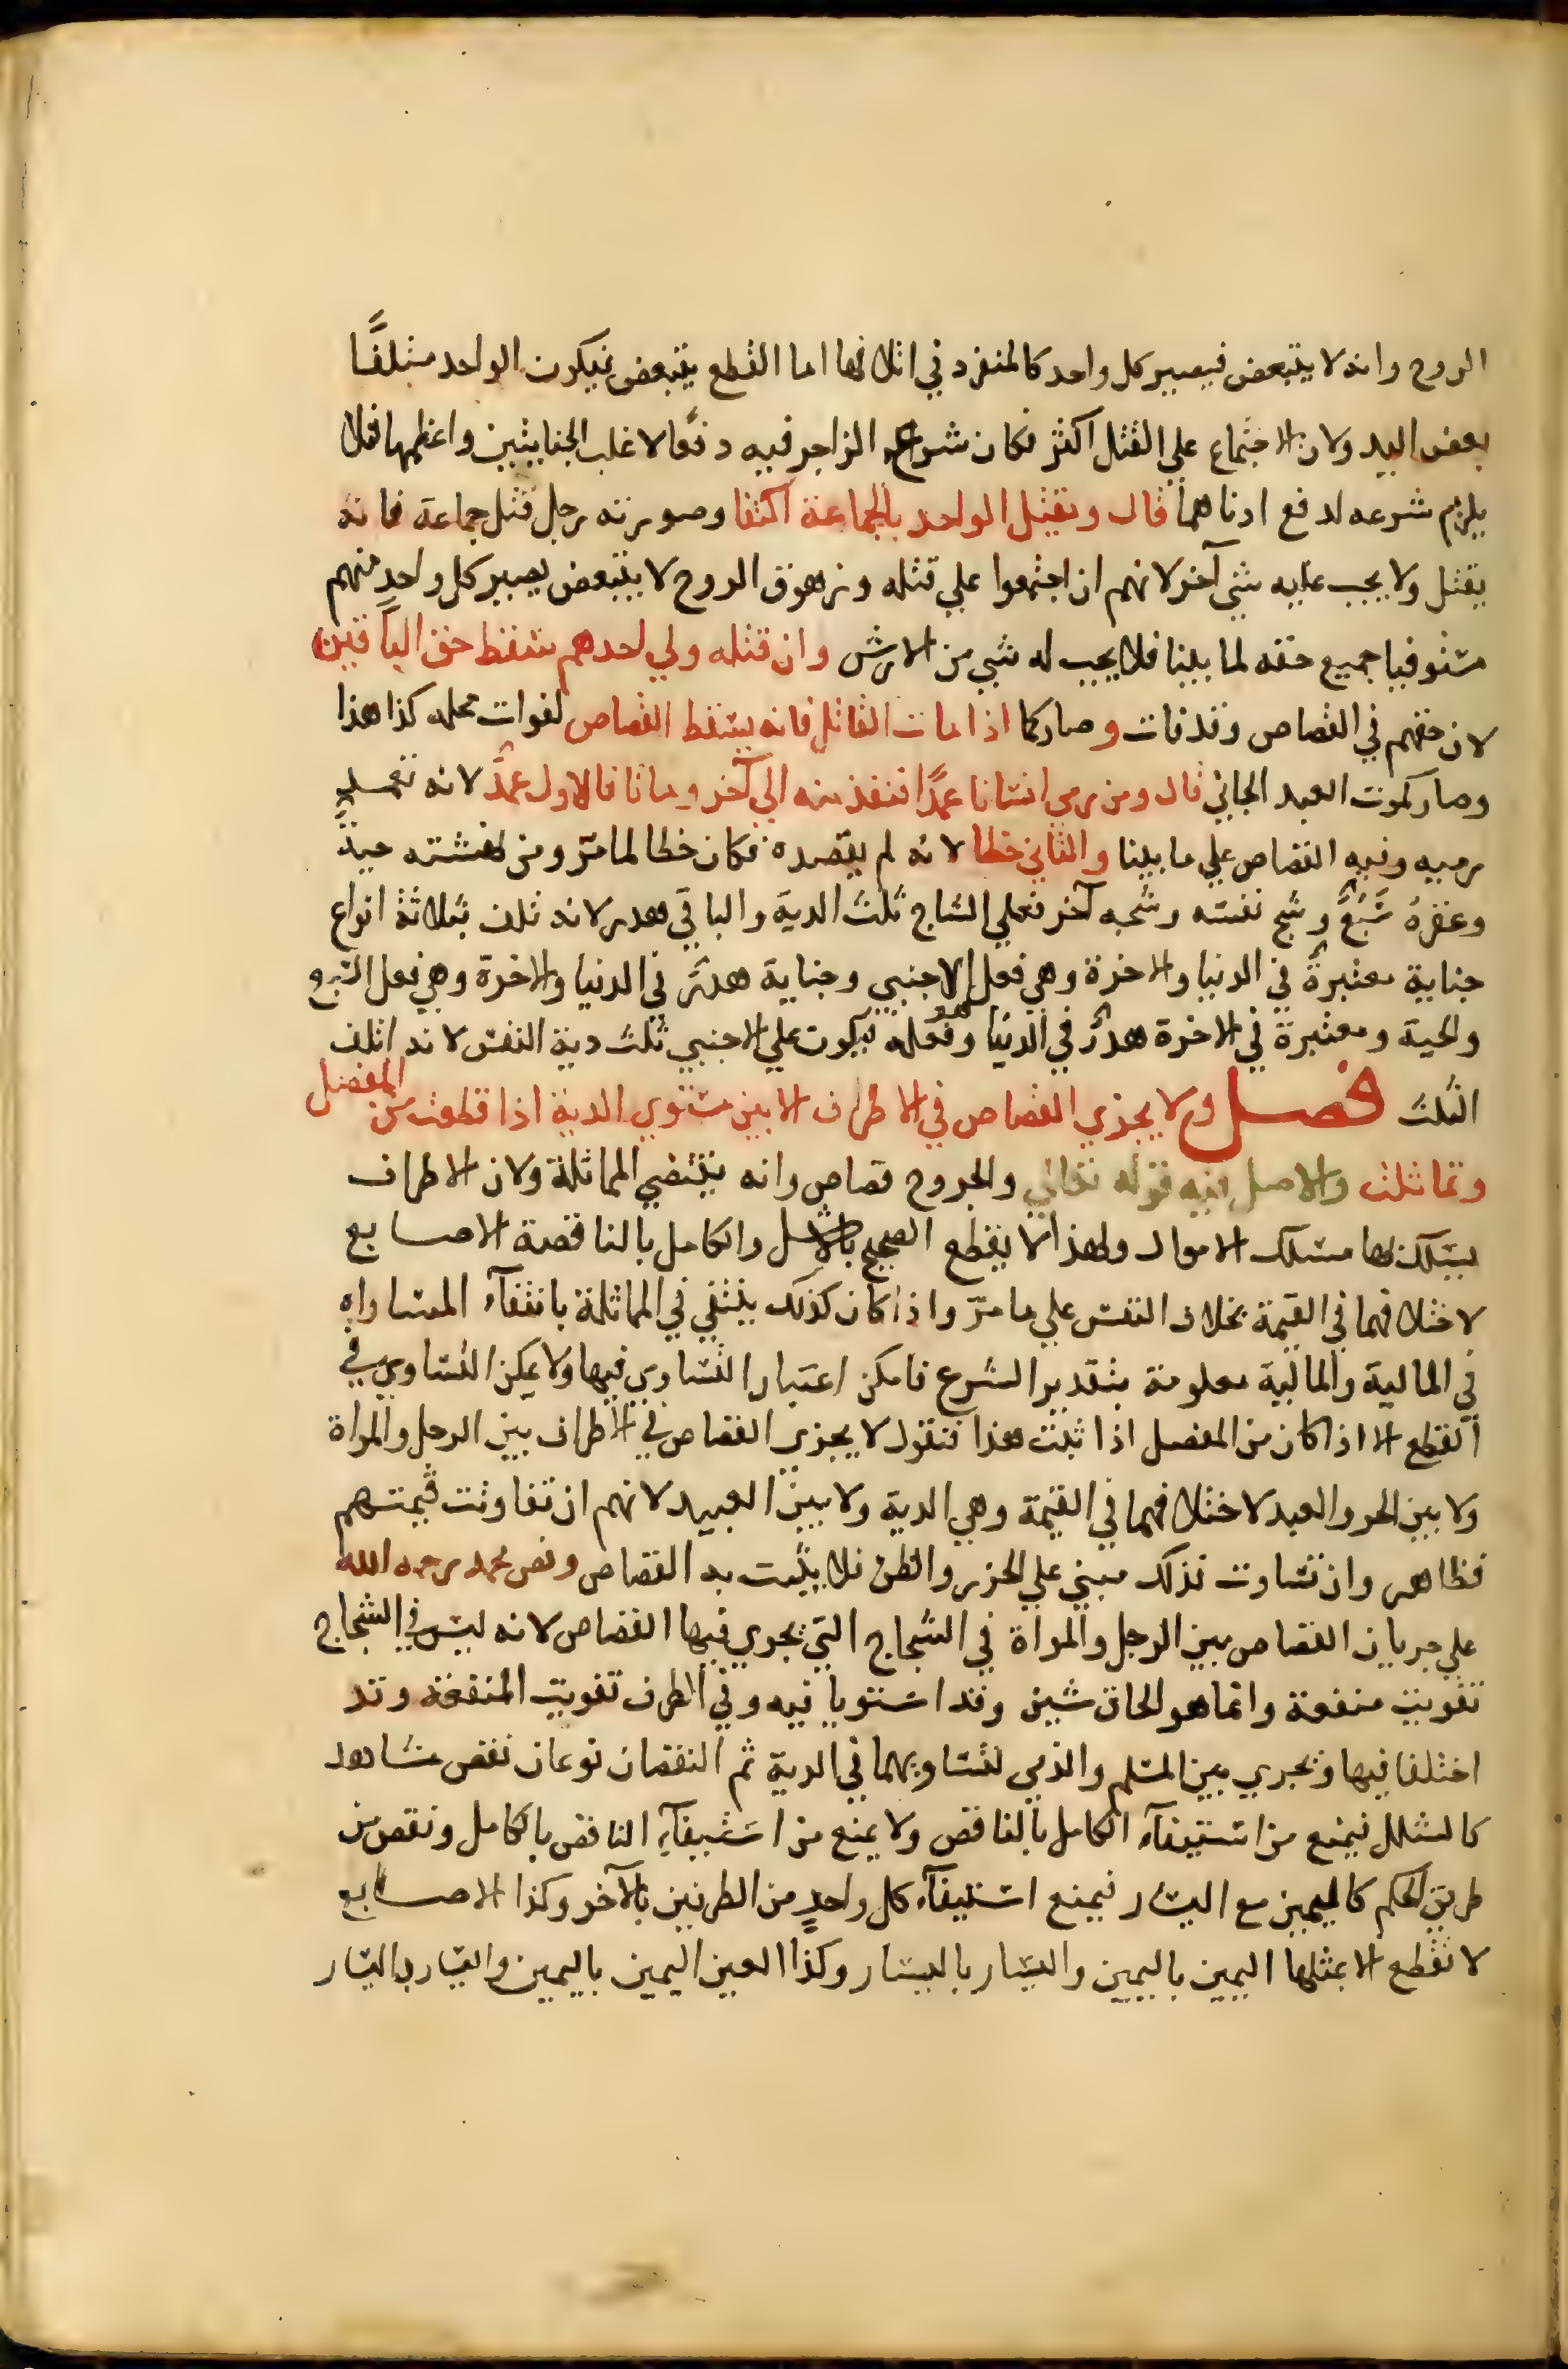 الروح وانه لا يتبعض فيصير كل واحد كالمنفرد في اتلافها اما القطع يتبعض فيكون الواحد متلفًا
بعض اليد ولان الاجتماع علي القتل اكثر فكان شرع الزاجر فيه دفعا لاغلب الجنايتين واعظمها فلا
يلزم شرعه لدفع ادناهما قال ويقتل الواحد بالجماعة اكتفا وصورته رجل قتل جماعة فانه
يقتل ولا يجب عليه شي آخر لانهم ان اجتمعوا علي قتله وزهوق الروح لا يتبعض يصير كل واحد منهم
مستوفيا جميع حقه لما بينا فلا يجب له شي من الارش وان قتله ولي احدهم سقط حق الباقين
لان حقهم في القصاص وقد فات وصار كما اذا مات القاتل فانه يسقط القصاص لفوات محله كذا هذا
وصار كموت العبد الجاني قال ومن رمي انسانا عمدًا فنفذ منه الي آخر وماتا فالاول عمدٌ لانه تعمد
رميه وفيه القصاص علي ما بينا والثاني خطا لانه لم يقصده فكان خطا لما مرّ ومن نهشته حيةٌ
وعقره سَبُعٌ وشج نفسه وشجه آخر فعلي الشاج ثلث الدية والباقي هدر لانه تلف بثلاثة انواع
جناية معتبرةٌ في الدنيا والاخرة وهي فعل الاجنبي وجناية هدرٌ في الدنيا والاخرة وهي فعل السبع
والحية ومعتبرة في الاخرة هدرٌ في الدنيا وهو فعله فيكون علي الاجنبي ثلث دية النفس لانه اتلف
الثلث فصل ولا يجزي القصاص في الاطراف الا بين مستوي الدية اذا قطعت من المفصل
وتماثلت والاصل فيه قوله تعالي والجروح قصاص وانه يقتضي المماثلة ولان الاطراف
يسلك بها مسلك الاموال ولهذا لا يقطع الصحيح بالاشل والكامل بالناقصة الاصابع
لاختلافهما في القيمة بخلاف النفس علي ما مرّ واذا كان كذلك ينتفي في المماثلة بانتفآء المساواه
في المالية والمالية معلومة بتقدير الشرع فامكن اعتبار التساوي فيها ولا يمكن التساوي في
القطع الا اذا كان من المفصل اذا ثبت هذا فنقول لا يجزي القصاص في الاطراف بين الرجل والمراة
ولا بين الحر والعبد لاختلافهما في القيمة وهي الدية ولا بين العبيد لانهم ان تفاوتت قيمتهم
فظاهر وان تساوت فذلك مبني علي الحزر والظن فلا يثبت به القصاص ونص محمد رحمه الله
علي جريان القصاص بين الرجل والمراة في الشجاج التي يجري فيها القصاص لانه ليس في الشجاج
تفويت منفعة وانما هو الحاق شين وقد استويا فيه وفي الطرف تفويت المنفعة وقد
اختلفا فيها وتجري بين المسلم والذمي لتساويهما في الدية ثم النقصان نوعان نقص مشاهد
كالشلل فيمنع من استيفآء الكامل بالناقص ولا يمنع من استيفآء الناقص بالكامل ونقص من
طريق الحكم كاليمين مع اليسار فيمنع استيفآء كل واحدٍ من الطرفين بالآخر وكذا الاصابع
لا تقطع الا بمثلها اليمين باليمين واليسار باليسار وكذا العين اليمين باليمين واليسار باليسار